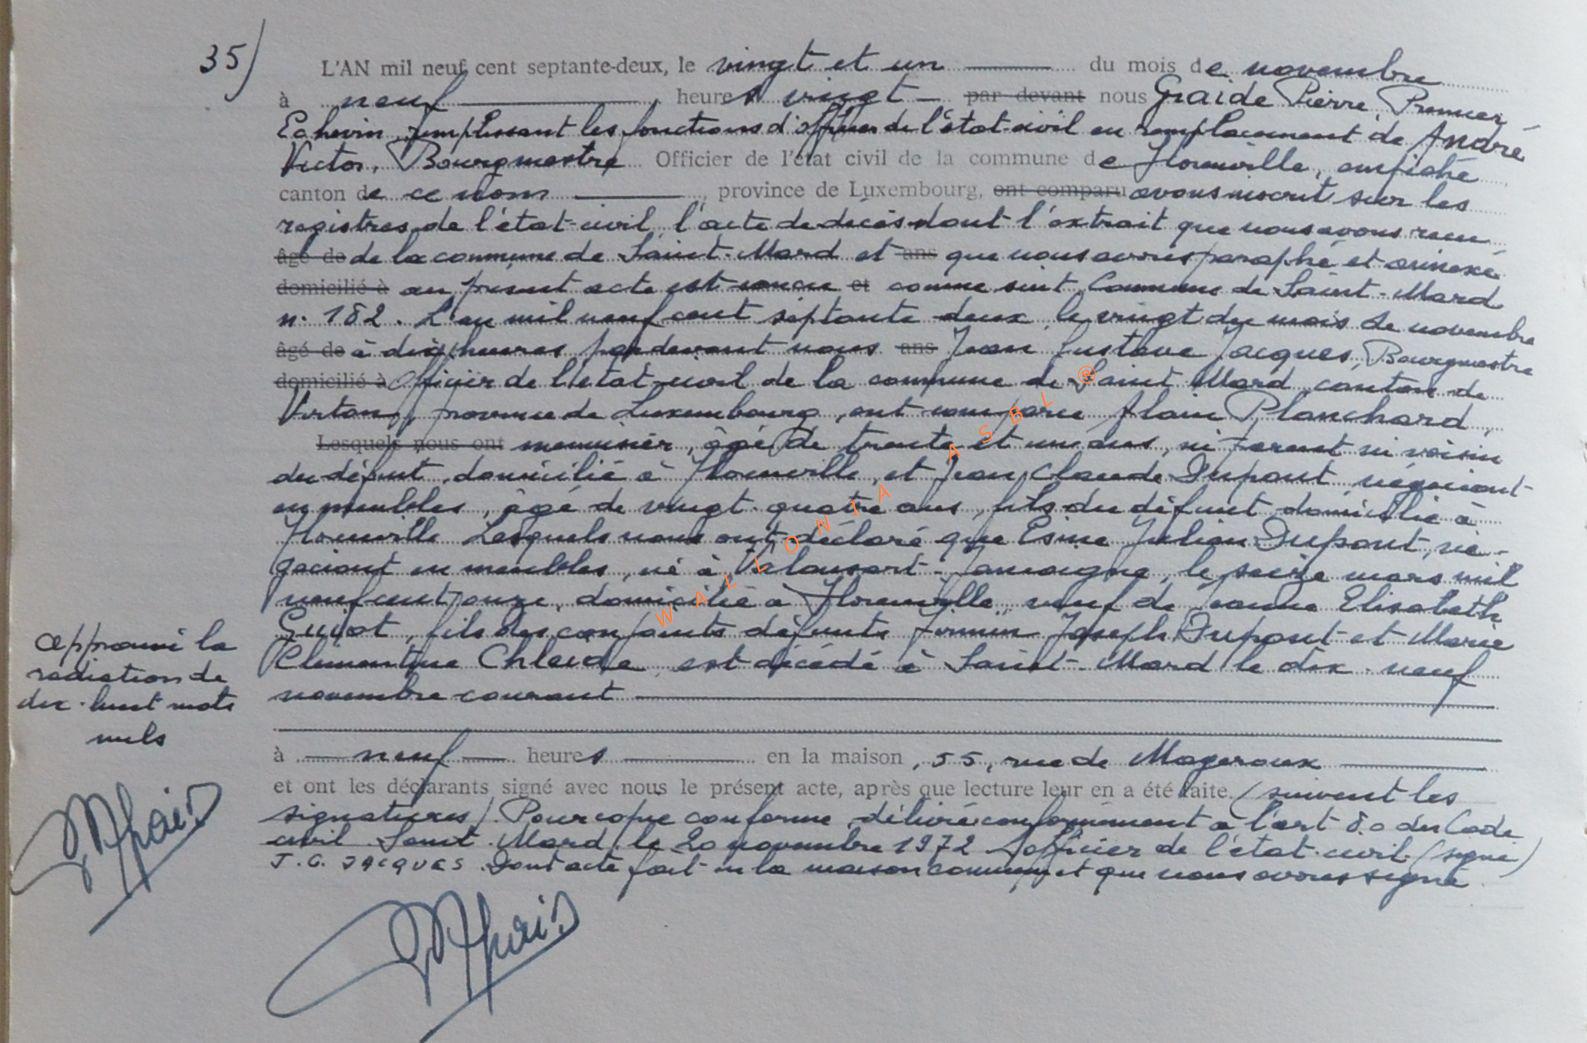 35)
L'AN mil neuf cent septante-deux, le vingt et un du mois de novembre
à neuf heures vingt par devant nous Graide Pierre, Premier
Echevin, remplissant les fonctions d'officier de l'état-civil en remplacement de André
Victor, Bourgmestre Officier de l'état civil de la commune de Florenville, empêché
canton de ce nom, province de Luxembourg, ont comparu avons inscrit sur les
registres de l'état-civil, l'acte de décès dont l'extrait que nous avons reçu
âgé de de la commune de Saint-Mard et ans que nous avons paraphé et annexé
domicilié à au présent acte est conçu et comme suit. Commune de Saint-Mard
n. 182. L'an mil neuf cent septante deux, le vingt du mois de novembre
âgé de à dix heures par devant nous ans Jean Gustave Jacques, Bourgmestre
domicilié à Officier de l'état-civil de la commune de Saint Mard, canton de
Virton, province de Luxembourg, ont comparu Alain Planchard,
Lesquels nous ont menuisier, âgé de trente et un ans, ni parent ni voisin
du défunt, domicilié à Florenville, et Jean Claude Dupont, négociant
en meubles, âgé de vingt-quatre ans, fils du défunt, domicilié à
Florenville. Lesquels nous ont déclaré que Esme Julien Dupont, né-
gociant en meubles, né à Valansart-Jamoigne, le seize mars mil
neuf cent onze, domicilié à Florenville, veuf de Jeanne Elisabeth
Guiot, fils des conjoints défunts Firmin Joseph Dupont et Marie
Clémentine Chleide, est décédé à Saint-Mard le dix-neuf
novembre courant
à neuf heures en la maison, 55, rue de Mageroux
et ont les déclarants signé avec nous le présent acte, après que lecture leur en a été faite. (suivent les
signatures). Pour copie conforme, délivrée conformément à l'art 80 du Code
civil Saint Mard, le 20 novembre 1972 L'officier de l'état-civil (signé)
J.G. JACQUES. Dont acte fait en la maison commune et que nous avons signé
approuvé la
radiation de
dix-huit mots
nuls
WALLONIA ASBL ®